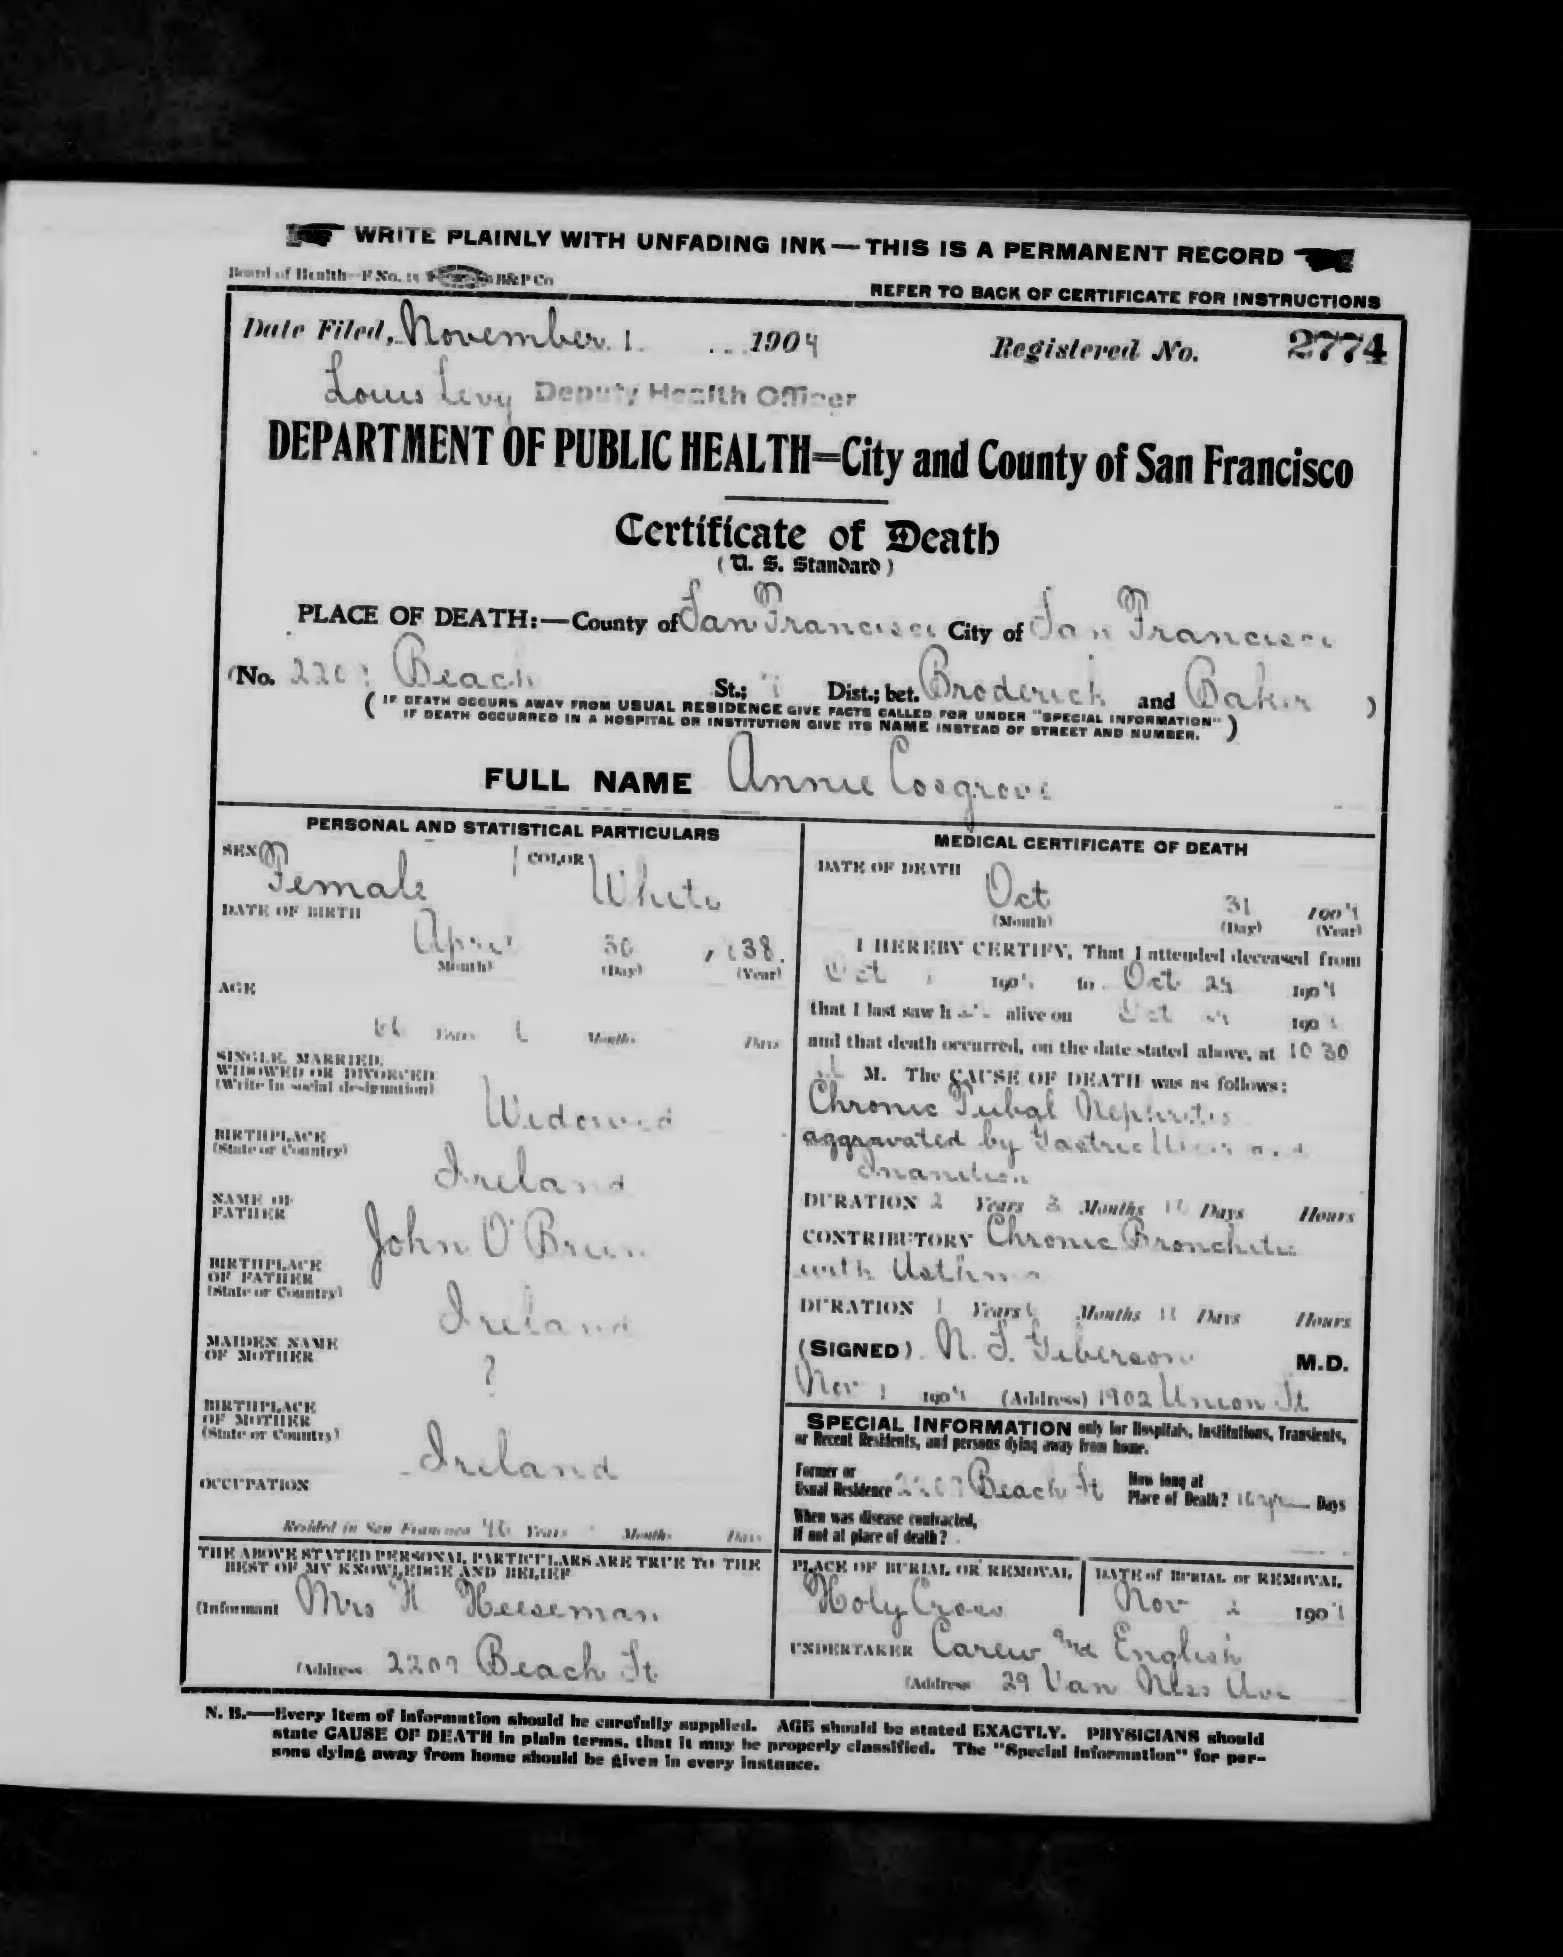 WRITE PLAINLY WITH UNFADING INK — THIS IS A PERMANENT RECORD
Board of Health—F No. 15 B&P Co
REFER TO BACK OF CERTIFICATE FOR INSTRUCTIONS
Date Filed, November 1 1904 Registered No. 2774
Louis Levy Deputy Health Officer
DEPARTMENT OF PUBLIC HEALTH=City and County of San Francisco
Certificate of Death
(U. S. Standard)
PLACE OF DEATH:—County of San Francisco City of San Francisco
(No. 2209 Beach St.; Dist.; bet. Broderick and Baker )
( IF DEATH OCCURS AWAY FROM USUAL RESIDENCE GIVE FACTS CALLED FOR UNDER "SPECIAL INFORMATION"
IF DEATH OCCURRED IN A HOSPITAL OR INSTITUTION GIVE ITS NAME INSTEAD OF STREET AND NUMBER. )
FULL NAME Annie Cosgrove
PERSONAL AND STATISTICAL PARTICULARS
SEX Female COLOR White
DATE OF BIRTH
April 30, 1838.
(Month) (Day) (Year)
AGE
66 Years 6 Months Days
SINGLE, MARRIED,
WIDOWED OR DIVORCED
(Write in social designation)
Widowed
BIRTHPLACE
(State or Country)
Ireland
NAME OF
FATHER
John O'Brien
BIRTHPLACE
OF FATHER
(State or Country)
Ireland
MAIDEN NAME
OF MOTHER
?
BIRTHPLACE
OF MOTHER
(State or Country)
Ireland
OCCUPATION
Resided in San Francisco Years Months Days
THE ABOVE STATED PERSONAL PARTICULARS ARE TRUE TO THE
BEST OF MY KNOWLEDGE AND BELIEF
(Informant Mrs H Heeseman
(Address 2209 Beach St
MEDICAL CERTIFICATE OF DEATH
DATE OF DEATH
Oct 31 1904
(Month) (Day) (Year)
I HEREBY CERTIFY, That I attended deceased from
Oct 1904 to Oct 1904
that I last saw her alive on Oct 1904
and that death occurred, on the date stated above, at 10 30
M. The CAUSE OF DEATH was as follows:
Chronic Tubal Nephritis
aggravated by Gastric Ulcer and
Inanition
DURATION 2 Years 3 Months Days Hours
CONTRIBUTORY Chronic Bronchitis
with Asthma
DURATION 1 Years 6 Months Days Hours
(SIGNED) N. S. Giberson M.D.
Nov 1 1904 (Address) 1902 Union St
SPECIAL INFORMATION only for Hospitals, Institutions, Transients,
or Recent Residents, and persons dying away from home.
Former or
Usual Residence 2209 Beach St
How long at
Place of Death? Days
When was disease contracted,
If not at place of death?
PLACE OF BURIAL OR REMOVAL
Holy Cross
DATE of BURIAL or REMOVAL
Nov 2 1904
UNDERTAKER Carew and English
(Address 29 Van Ness Ave
N. B.—Every item of information should be carefully supplied. AGE should be stated EXACTLY. PHYSICIANS should
state CAUSE OF DEATH in plain terms, that it may be properly classified. The "Special Information" for per-
sons dying away from home should be given in every instance.